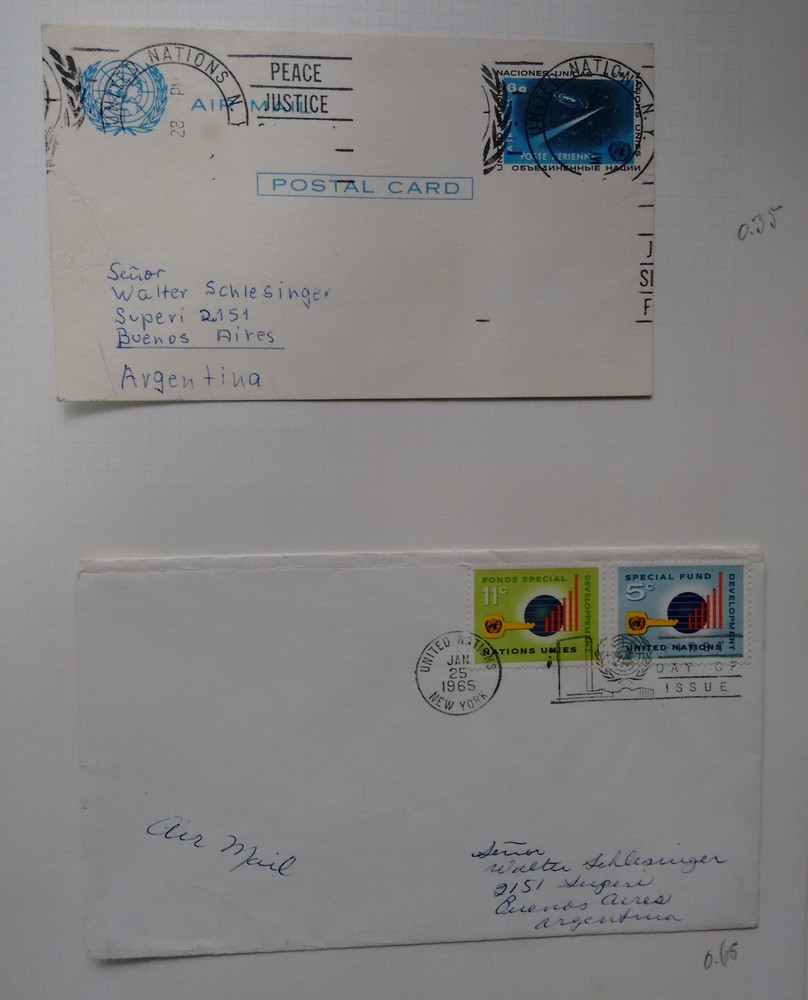 UNITED NATIONS N.Y.
PEACE
JUSTICE
AIR MAIL
28 PM
POSTAL CARD
NACIONES UNIDAS
6c
NATIONS UNIES
POSTE AÉRIENNE
ОБЪЕДИНЕННЫЕ НАЦИИ
UNITED NATIONS N.Y.
J
SI
F
Señor
Walter Schlesinger
Superi 2151
Buenos Aires
Argentina
0.35
FONDS SPECIAL
11c
DEVELOPPEMENT
NATIONS UNIES
SPECIAL FUND
5c
DEVELOPMENT
UNITED NATIONS
UNITED NATIONS
JAN
25
1965
NEW YORK
DAY OF
ISSUE
Air Mail
Señor
Walter Schlesinger
2151 Superi
Buenos Aires
Argentina
0.65